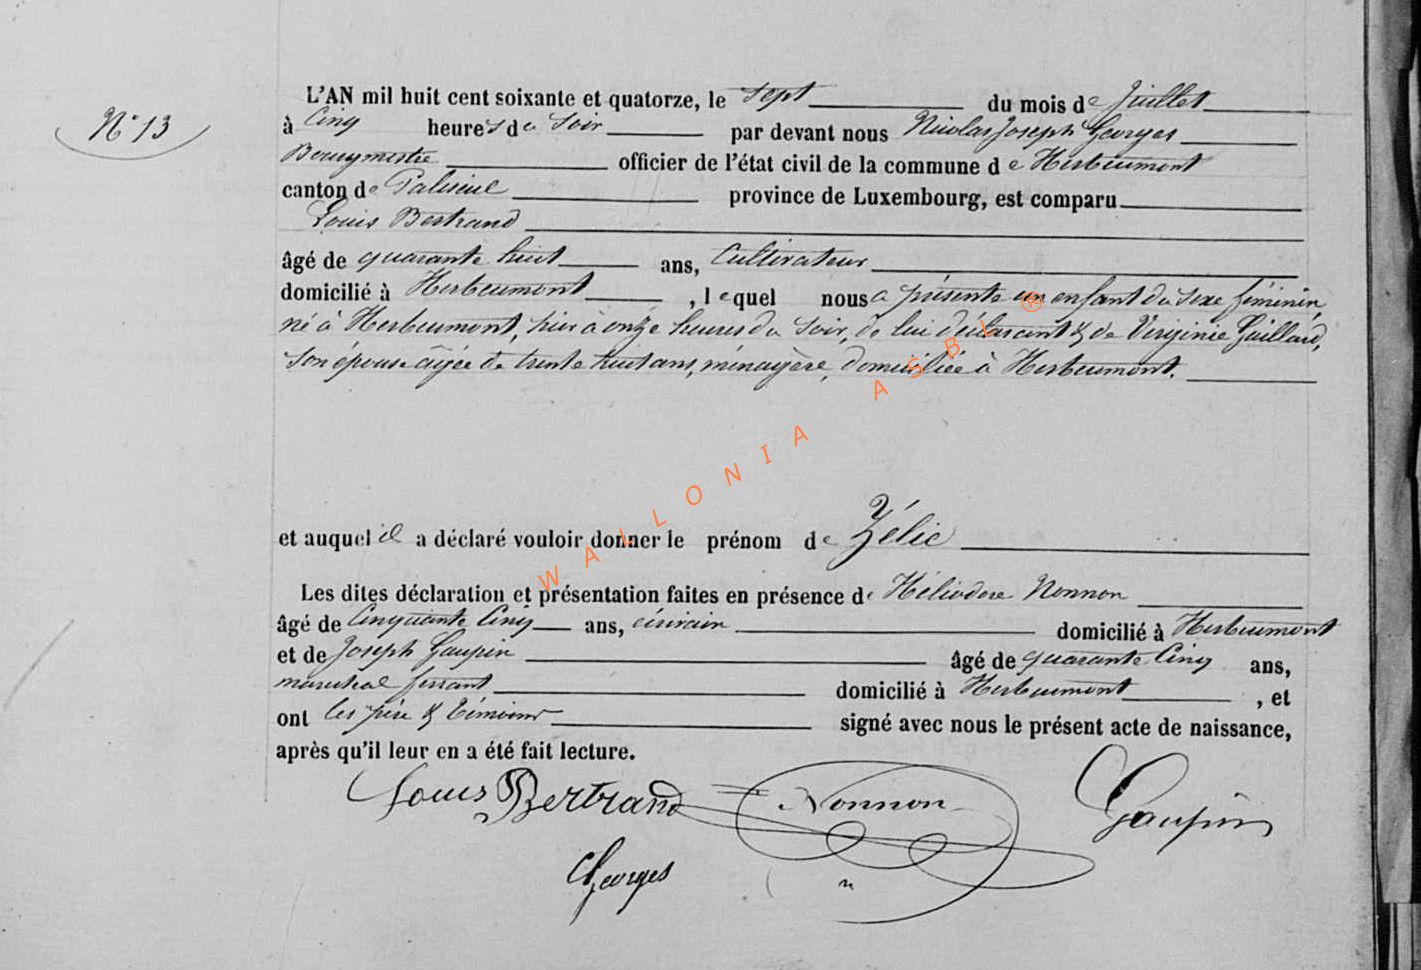 N° 13
L'AN mil huit cent soixante et quatorze, le sept du mois de Juillet
à Cinq heures du Soir par devant nous Nicolas Joseph Georges
Bourgmestre officier de l'état civil de la commune de Herbeumont
canton de Paliseul province de Luxembourg, est comparu
Louis Bertrand
âgé de quarante huit ans, Cultivateur
domicilié à Herbeumont, lequel nous a présenté un enfant du sexe féminin,
né à Herbeumont, hier à onze heures du Soir, de lui déclarant & de Virginie Guillard,
son épouse âgée de trente huit ans, ménagère, domiciliée à Herbeumont.
et auquel il a déclaré vouloir donner le prénom de Zélie
Les dites déclaration et présentation faites en présence de Héliodore Nonnon
âgé de Cinquante Cinq ans, écrivain domicilié à Herbeumont
et de Joseph Gaupin âgé de quarante Cinq ans,
maréchal ferrant domicilié à Herbeumont, et
ont les père & témoins signé avec nous le présent acte de naissance,
après qu'il leur en a été fait lecture.
Louis Bertrand Nonnon Gaupin
Georges
WALLONIA ASBL ®